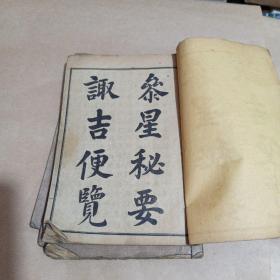 叅星秘要
諏吉便覽